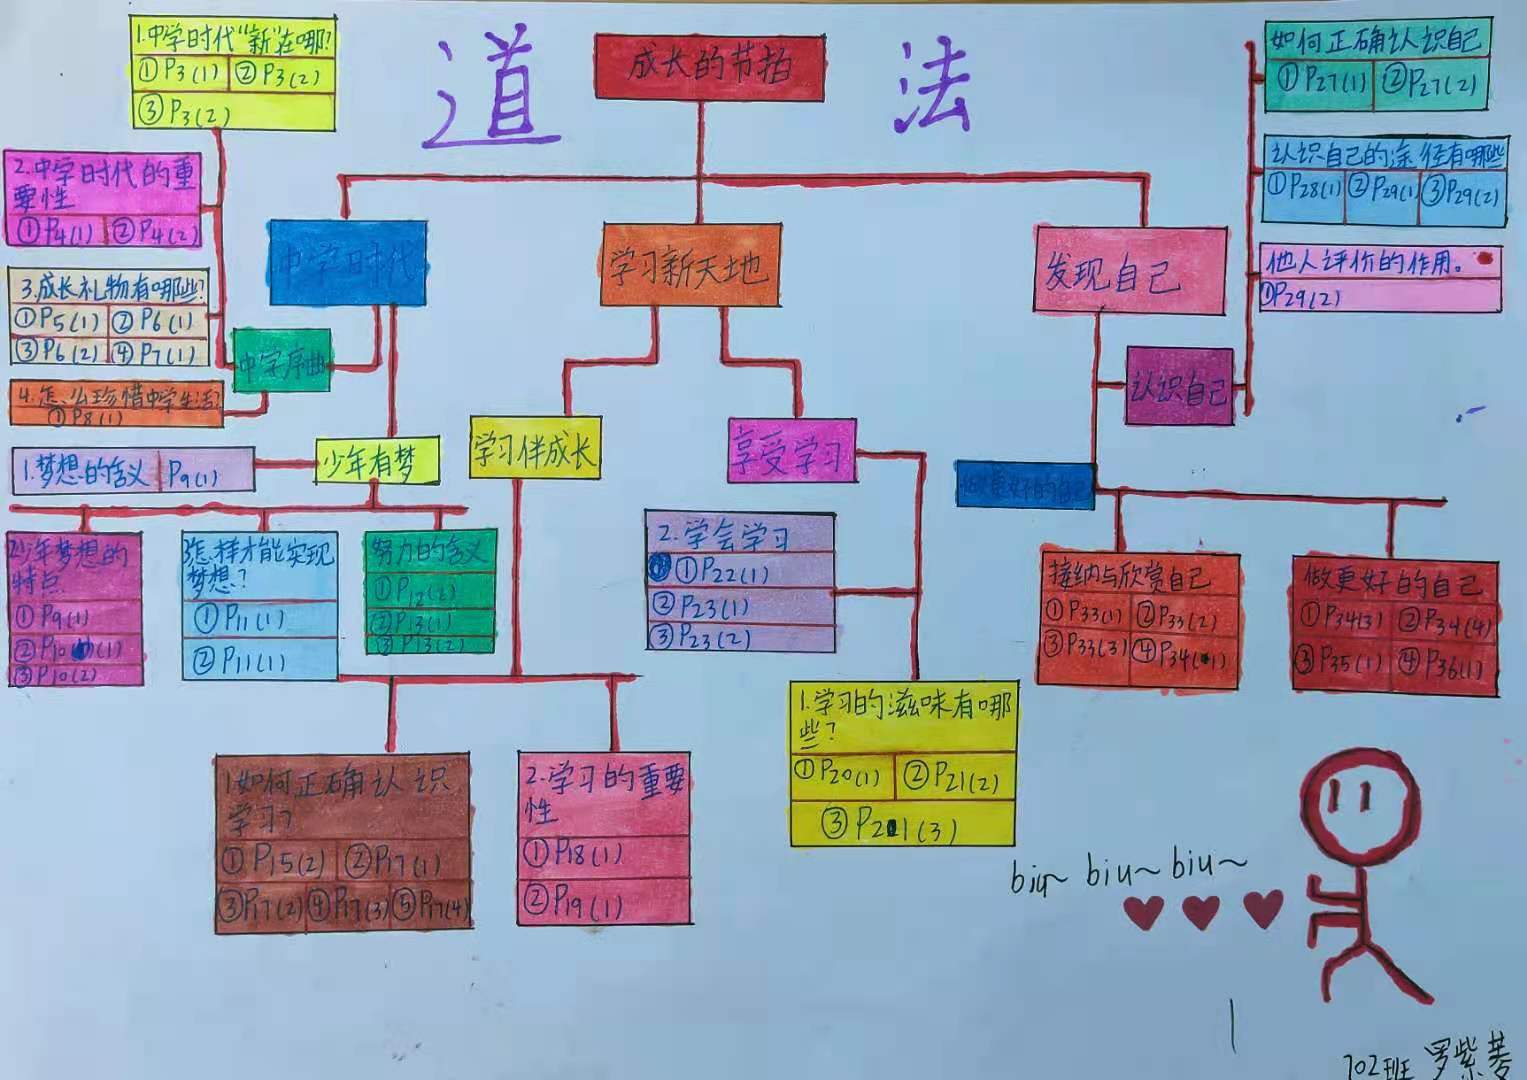 道 法
成长的节拍
中学时代
学习新天地
发现自己
1.中学时代"新"在哪?
①P3(1) ②P3(2)
③P3(2)
2.中学时代的重
要性
①P4(1) ②P4(2)
3.成长礼物有哪些?
①P5(1) ②P6(1)
③P6(2) ④P7(1)
4.怎么珍惜中学生活?
①P8(1)
中学序曲
少年有梦
1.梦想的含义 P9(1)
2少年梦想的
特点
①P9(1)
②P10(1)
③P10(2)
怎样才能实现
梦想?
①P11(1)
②P11(1)
努力的含义
①P12(2)
②P13(1)
③P13(2)
学习伴成长
享受学习
1如何正确认识
学习?
①P15(2) ②P17(1)
③P17(2) ④P17(3) ⑤P17(4)
2.学习的重要
性
①P18(1)
②P19(1)
2.学会学习
①P22(1)
②P23(1)
③P23(2)
1.学习的滋味有哪
些?
①P20(1) ②P21(2)
③P21(3)
认识自己
如何正确认识自己
①P27(1) ②P27(2)
认识自己的涂径有哪些
①P28(1) ②P29(1) ③P29(2)
他人评价的作用。
①P29(2)
做更好的自己
接纳与欣赏自己
①P33(1) ②P33(2)
③P33(3) ④P34(1)
做更好的自己
①P34(3) ②P34(4)
③P35(1) ④P36(1)
biu~ biu~ biu~
702班 罗紫菱